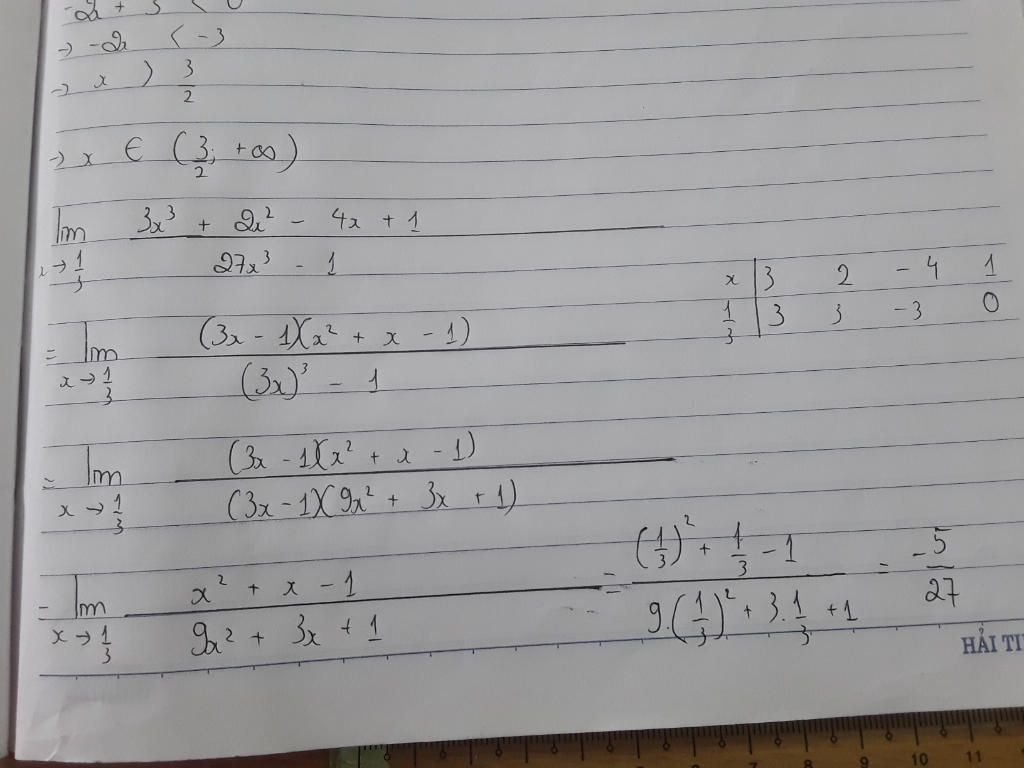 -2x + 3 < 0
→ -2x < -3
→ x > 3/2
→ x ∈ (3/2; +∞)
lim x→1/3 (3x³ + 2x² - 4x + 1)/(27x³ - 1)
x | 3 2 -4 1
1/3 | 3 3 -3 0
= lim x→1/3 (3x - 1)(x² + x - 1)/((3x)³ - 1)
= lim x→1/3 (3x - 1)(x² + x - 1)/((3x - 1)(9x² + 3x + 1))
= lim x→1/3 (x² + x - 1)/(9x² + 3x + 1) = ((1/3)² + 1/3 - 1)/(9.(1/3)² + 3.1/3 + 1) = -5/27
HẢI
7 8 9 10 11